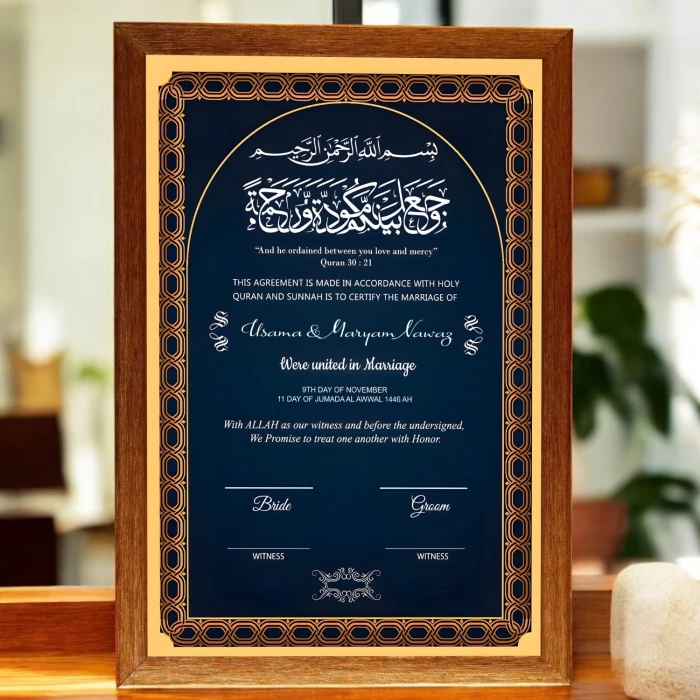 بِسْمِ اللَّهِ الرَّحْمَٰنِ الرَّحِيمِ
وَجَعَلَ بَيْنَكُم مَّوَدَّةً وَرَحْمَةً
“And he ordained between you love and mercy”
Quran 30 : 21
THIS AGREEMENT IS MADE IN ACCORDANCE WITH HOLY
QURAN AND SUNNAH IS TO CERTIFY THE MARRIAGE OF
Usama & Maryam Nawaz
Were united in Marriage
9TH DAY OF NOVEMBER
11 DAY OF JUMADA AL AWWAL 1446 AH
With ALLAH as our witness and before the undersigned,
We Promise to treat one another with Honor.
Bride Groom
WITNESS WITNESS